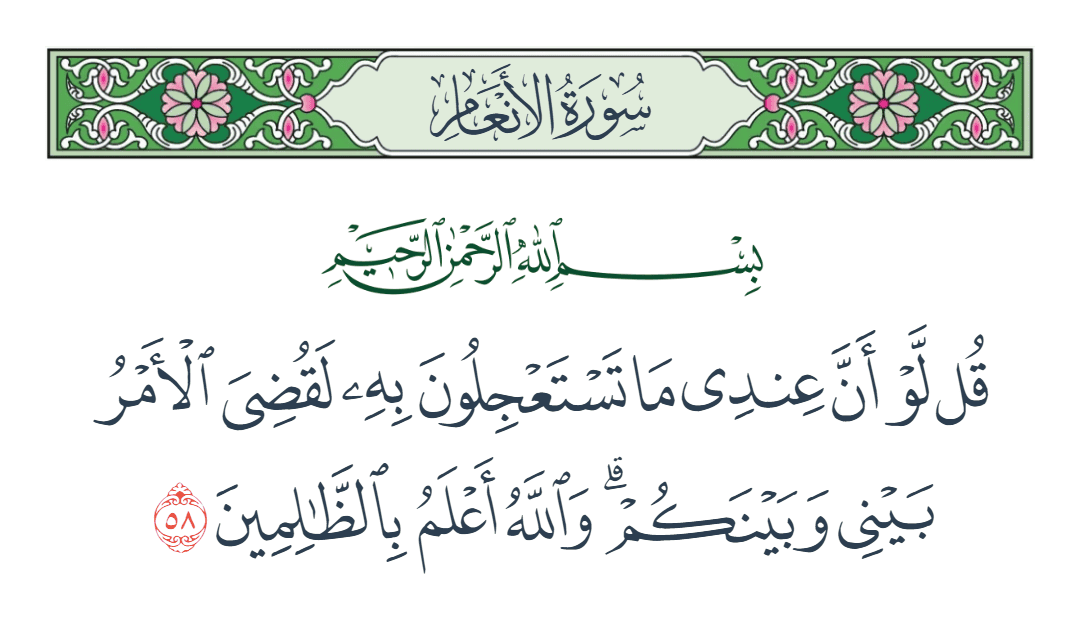 سُورَةُ الأَنْعَامِ
بِسْمِ ٱللَّهِ ٱلرَّحْمَٰنِ ٱلرَّحِيمِ
قُل لَّوْ أَنَّ عِندِى مَا تَسْتَعْجِلُونَ بِهِۦ لَقُضِىَ ٱلْأَمْرُ
بَيْنِى وَبَيْنَكُمْ ۗ وَٱللَّهُ أَعْلَمُ بِٱلظَّٰلِمِينَ ٥٨